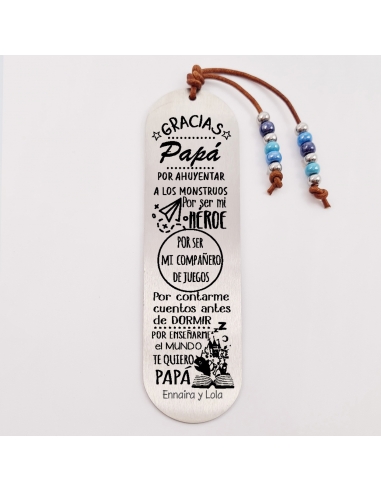 GRACIAS
Papá
POR AHUYENTAR
A LOS MONSTRUOS
Por ser mi
HÉROE
POR SER
MI COMPAÑERO
DE JUEGOS
Por contarme
cuentos antes
de DORMIR
POR ENSEÑARME
el MUNDO
TE QUIERO
PAPÁ
Ennaira y Lola